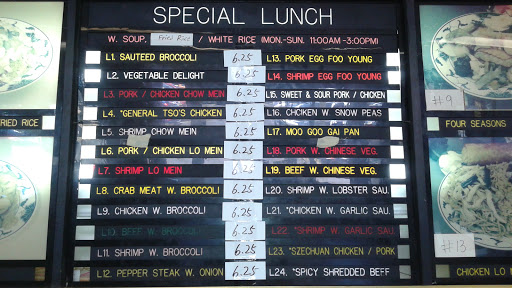 SPECIAL LUNCH
W. SOUP, Fried Rice / WHITE RICE (MON.-SUN. 11:00AM-3:00PM)
L1. SAUTEED BROCCOLI 6.25 L13. PORK EGG FOO YOUNG
L2. VEGETABLE DELIGHT 6.25 L14. SHRIMP EGG FOO YOUNG
L3. PORK / CHICKEN CHOW MEIN 6.25 L15. SWEET & SOUR PORK / CHICKEN
L4. *GENERAL TSO'S CHICKEN 6.25 L16. CHICKEN W. SNOW PEAS
L5. SHRIMP CHOW MEIN 6.25 L17. MOO GOO GAI PAN
L6. PORK / CHICKEN LO MEIN 6.25 L18. PORK W. CHINESE VEG.
L7. SHRIMP LO MEIN 6.25 L19. BEEF W. CHINESE VEG.
L8. CRAB MEAT W. BROCCOLI 6.25 L20. SHRIMP W. LOBSTER SAU.
L9. CHICKEN W. BROCCOLI 6.25 L21. *CHICKEN W. GARLIC SAU.
L10. BEEF W. BROCCOLI 6.25 L22. *SHRIMP W. GARLIC SAU.
L11. SHRIMP W. BROCCOLI 6.25 L23. *SZECHUAN CHICKEN / PORK
L12. PEPPER STEAK W. ONION 6.25 L24. *SPICY SHREDDED BEEF
RIED RICE
#9
FOUR SEASONS
#13
CHICKEN LO ME